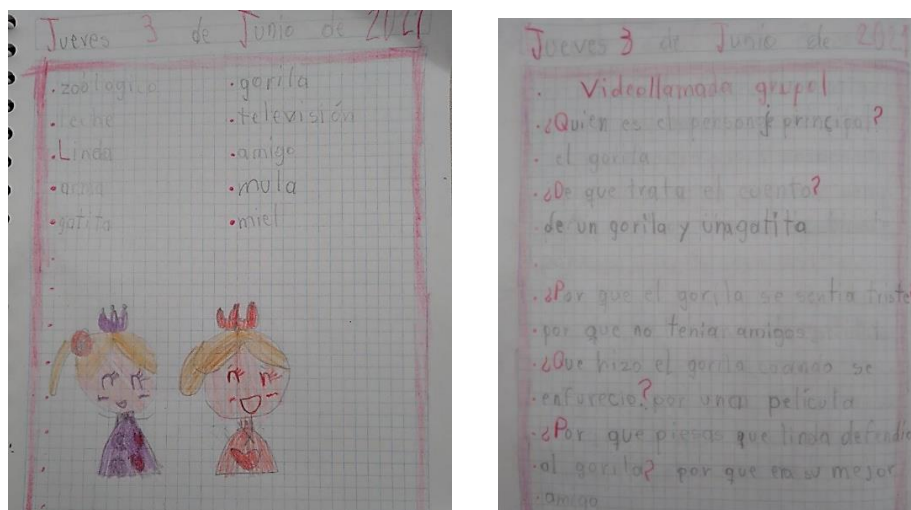 Jueves 3 de Junio de 2021
.zoológico
.leche
.Linda
.gatita
.gorila
.televisión
.amigo
.mula
.miel
Jueves 3 de Junio de 2021
. Videollamada grupal
.¿Quien es el personaje principal?
. el gorila
.¿De que trata el cuento?
.de un gorila y una gatita
.¿Por que el gorila se sentia triste
.por que no tenia amigos
.¿Que hizo el gorila cuando se
.enfurecio? por una pelicula
.¿Por que piesas que linda defendio
.al gorila? por que era su mejor
.amigo